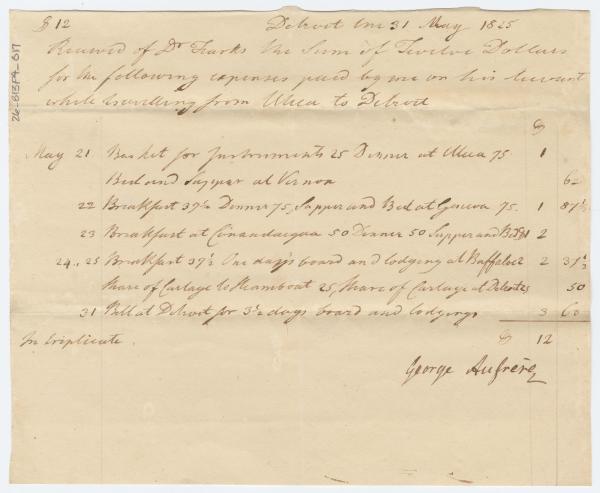 $ 12 Detroit the 31 May 1825
Received of Dr Franks the Sum of Twelve Dollars
for the following expenses paid by me on his account
while travelling from Utica to Detroit
$
May 21 Basket for Instruments 25 Dinner at Utica 75 1
Bed and Supper at Vernon 62
22 Breakfast 37½ Dinner 75, Supper and Bed at Geneva 75 1 87½
23 Breakfast at Canandaigua 50 Dinner 50 Supper and Bed $1 2
24..25 Breakfast 37½ One day's board and lodging at Buffaloe 2 2 37½
Share of Cartage to Steamboat 25, Share of Cartage at Detroit 25 50
31 Bill at Detroit for 3½ days board and lodgings 3 63
In triplicate. $ 12
George Aufrère
26-613F4-617